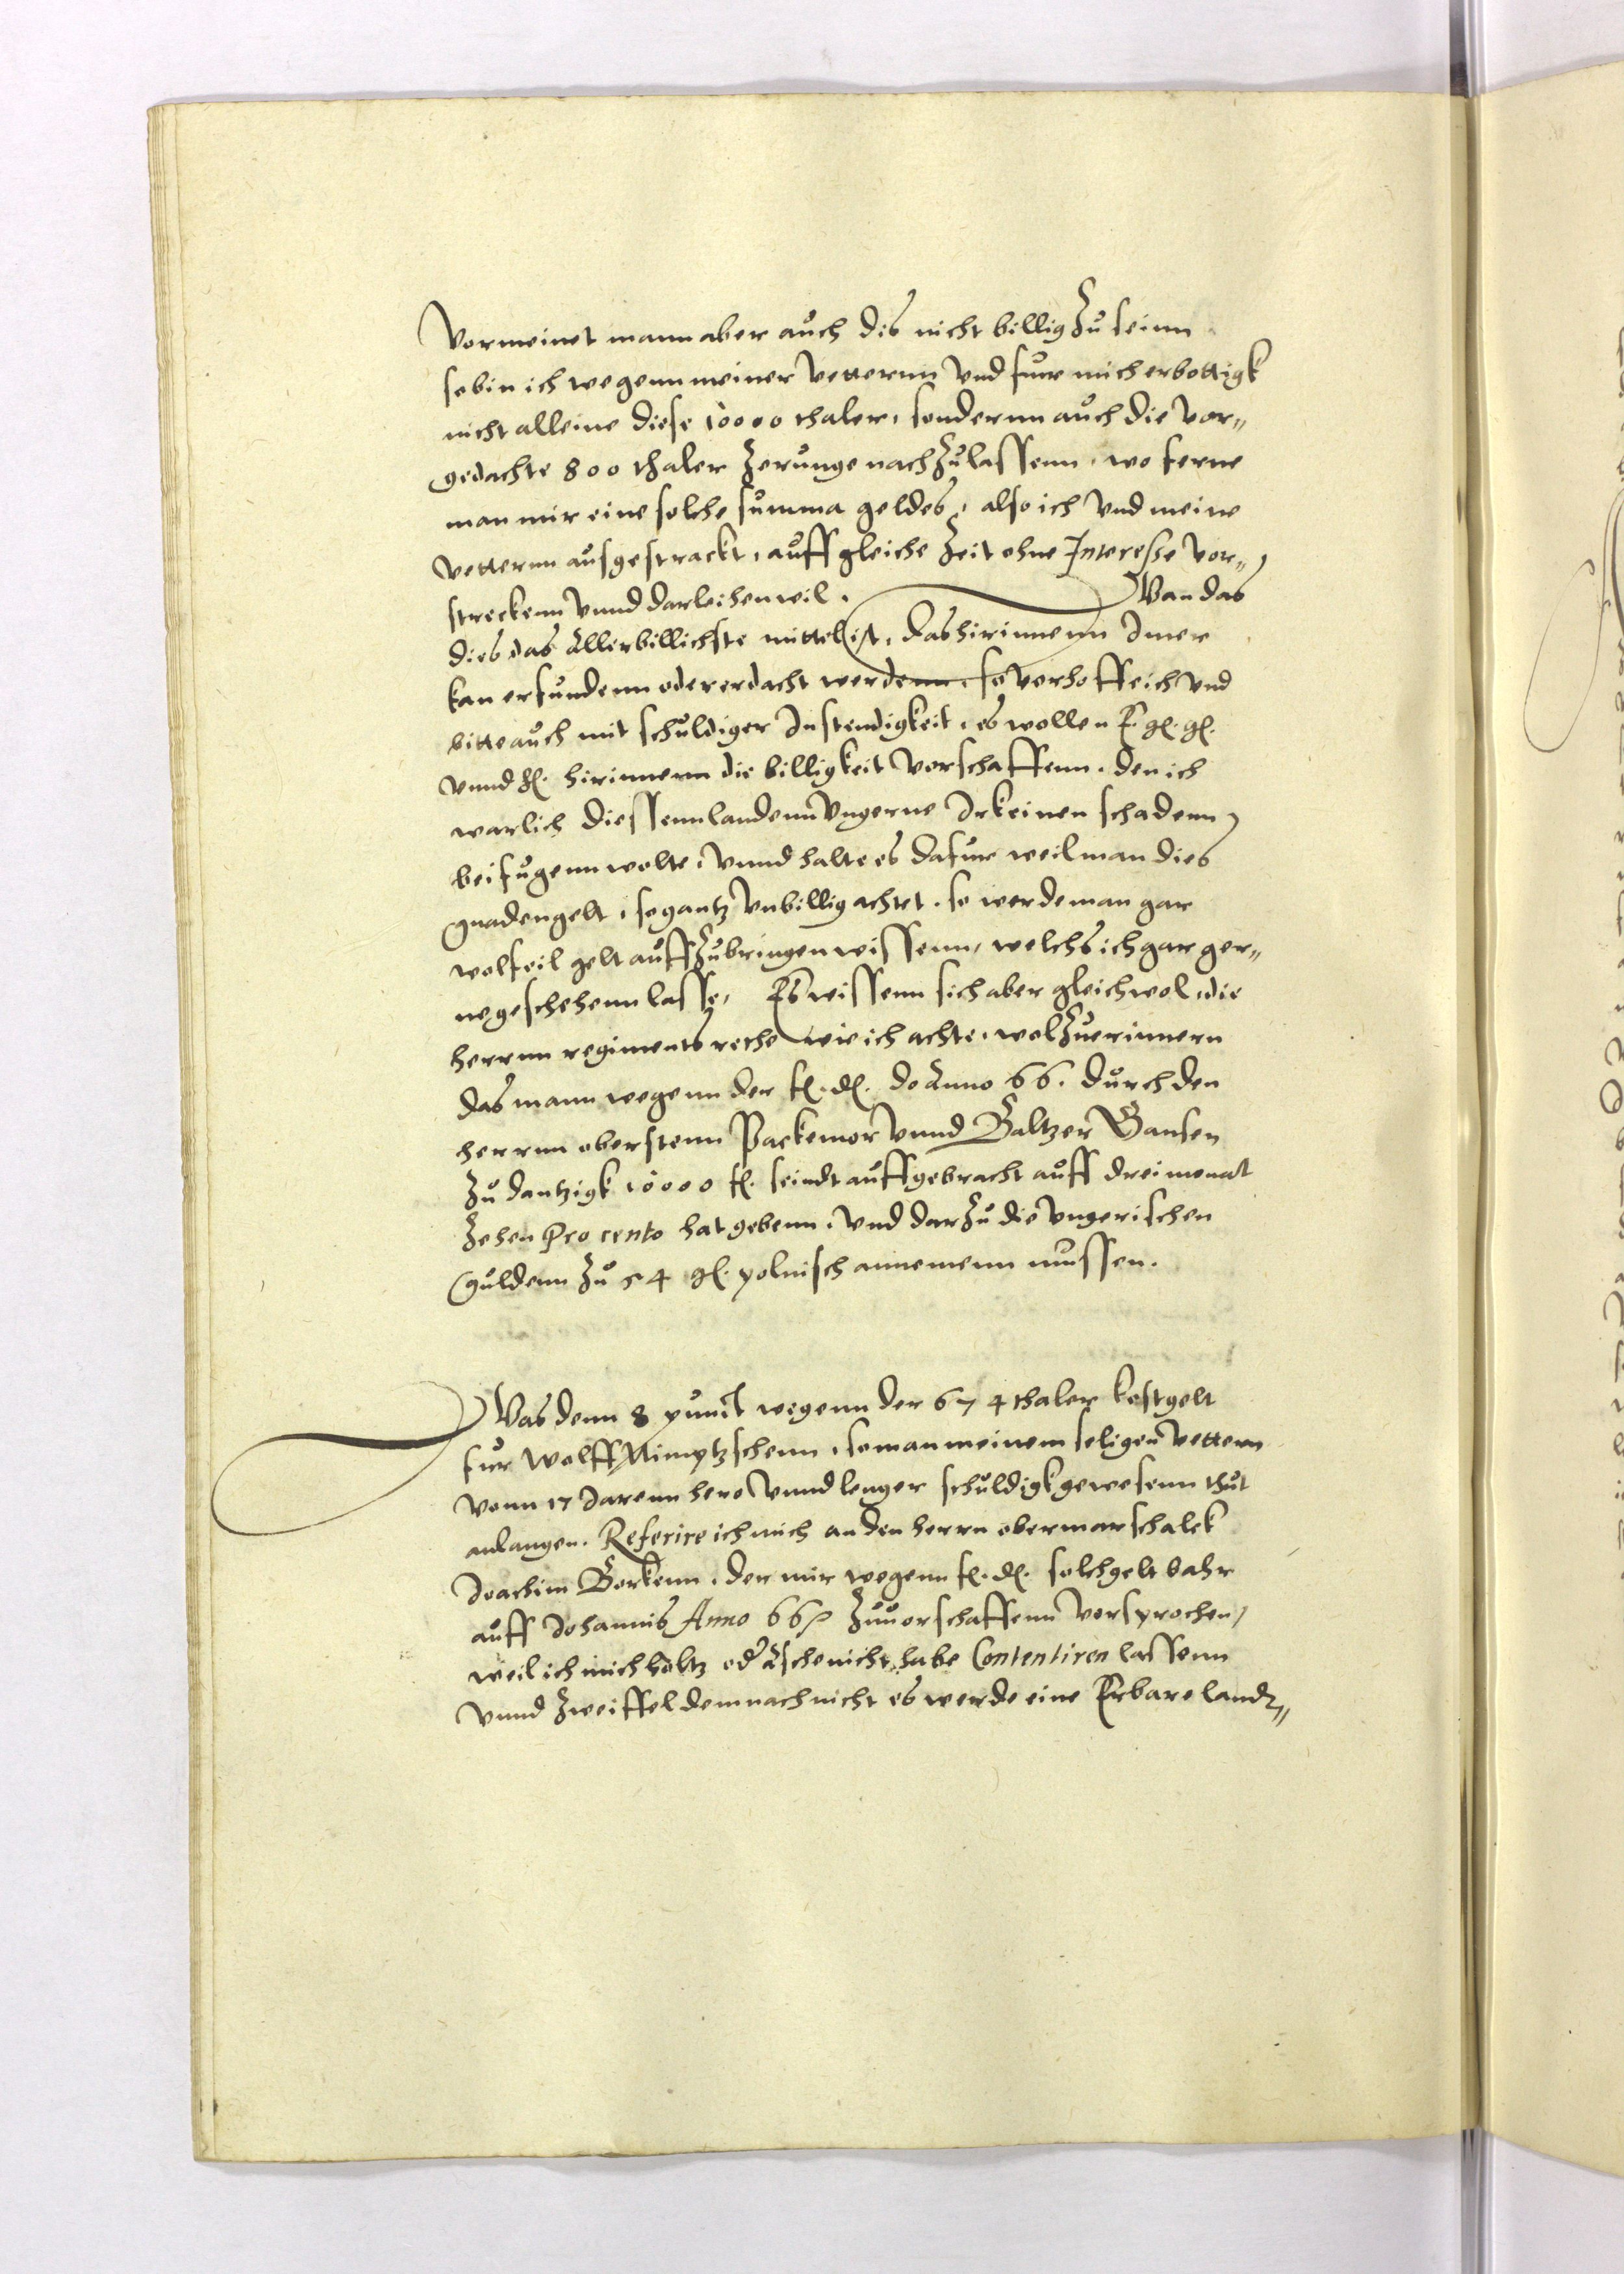 Vormeinet mann aber auch dis nicht billig zu seinn
so bin ich wegenn meiner vetternn vnd fur mich erbottigk
nicht alleine diese 10000 thaler, sondernn auch die vor„
gedachte 800 thaler zerunge nachzulassenn, wo ferne
man mir eine solche summa geldes, also ich vnd meine
vetternn ausgestrackt, auff gleiche zeit ohne Interesse vor„
streckenn vnnd darleihen wil. Wan das
dies das allerbillichste mittel ist, das hirinnenn Imer
kan erfundenn oder erdacht werdenn, so verhoffe ich vnd
bitte auch mit schuldiger Instendigkeit, es wollen E. g. g.
vnnd hirinnenn die billigkeit vorschaffenn. den ich
warlich diessenn landenn vngerne Irkeinen schadenn
beifugenn wolte, vnnd halte es dafur weil man dies
gnadengelt, so gantz vnbillig achtet. so werde man gar
wolfeil gelt auffzubringen wissenn, welchs ich gar ger„
ne geschehenn lasse, Es wissenn sich aber gleichwol, die
herrnn regiments rethe wie ich achte, wol zuerinnern
das mann wegenn der f. d. de Anno 66. durch den
herrnn oberstenn Packmor vnnd Baltzer Gansen
zu dantzigk 10000 fl. seindt auffgebracht auff drei monat
zehen Pro cento hat gebenn, vnd darzu die vngerischen
guldenn zu 54 gl. polnisch annemenn mussen.
Was denn 8 punct wegenn der 674 thaler kostgelt
fur Wolff Nimptzschenn, so man meinem seligen vettern
vonn 17 Jarenn hero vnnd lenger schuldigk gewesenn thut
anlangen. Referire ich mich an den herrn obermarschalck
Joachim Borkenn, der mir wegenn f. d. solch gelt bahr
auff Johannis Anno 66 zuuorschaffenn versprochen,
weil ich mich holtz oder Asche nicht habe Contentiren lassenn
vnnd zweiffel demnach nicht es werde eine Erbare landt„